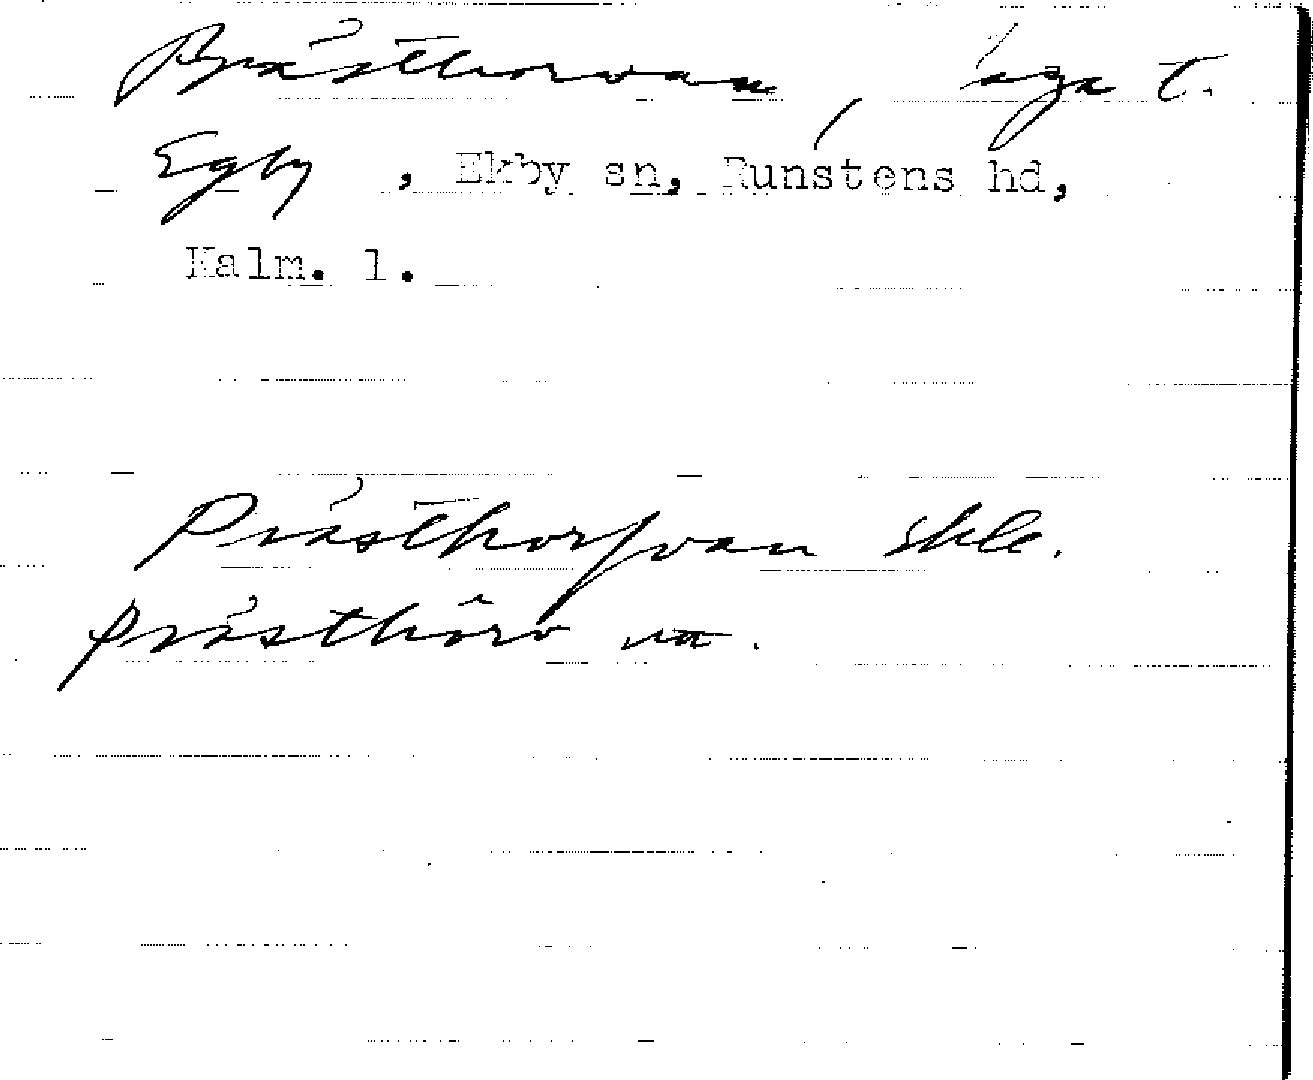 Prästhorvan, äga t.
Egby, Ekby sn, Runstens hd,
Kalm. l.
Prästhorfvan skle.
prästhôrv